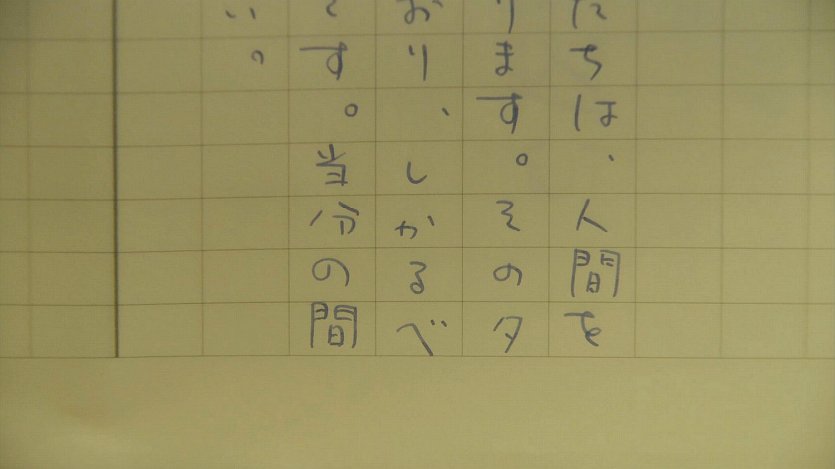 たちは、人間を
ります。その夕
おり、しかるべ
す。当分の間
い。